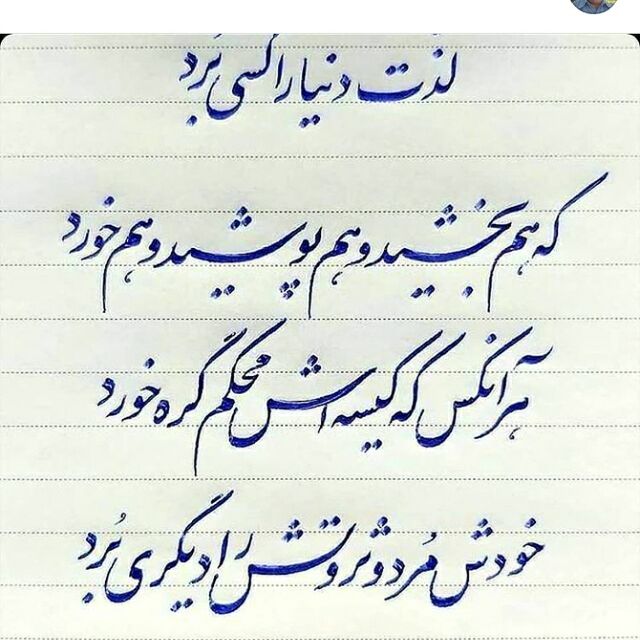 لذت دنیا را کسی بُرد
که هم بخشید و هم پوشید و هم خورد
هر آنکس که کیسه اش محکم گره خورد
خودش مُرد و ثروتش را دیگری بُرد